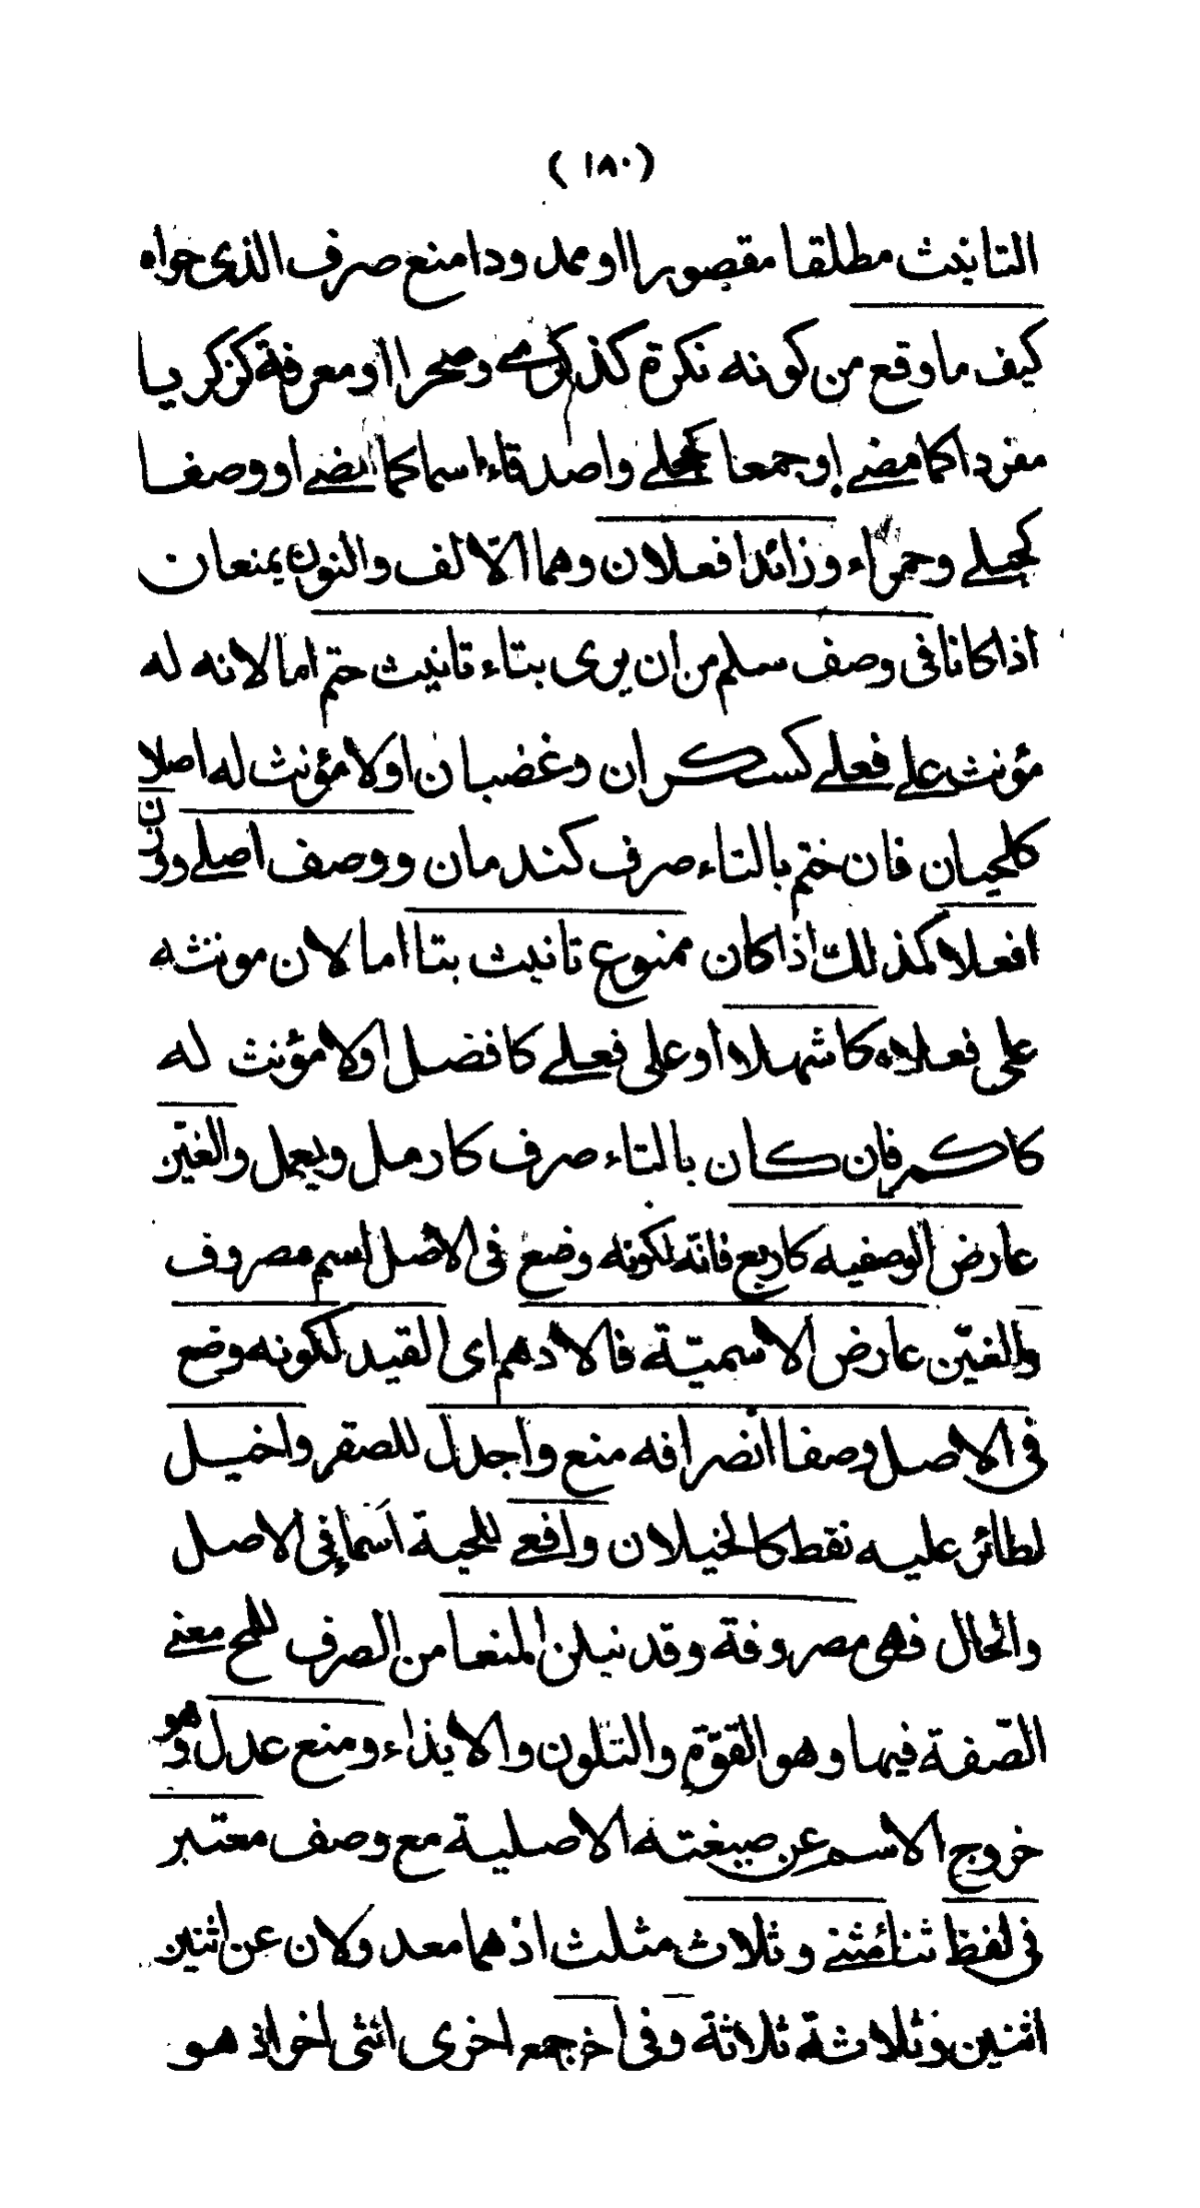 (١٨٠)
التانيث مطلقا مقصورا او ممدودا منع صرف الذى حواه
كيف ما وقع من كونه نكرة كذكرى وصحرا او معرفة كزكريا
مفردا كما مضى او جمعا كحجلى واصدقاء اسما كما مضى او وصفا
كحبلى وحمراء وزائدا فعلان وهما الالف والنون يمنعان
اذا كانا فى وصف سلم من ان يرى بتاء تانيث ختم اما لانه له
مؤنث على فعلى كسكران وغضبان او لا مؤنث له اصلا
كلحيان فان ختم بالتاء صرف كندمان ووصف اصلى ووزن
افعلا كذلك اذا كان ممنوع تانيث بتا اما لان مونثه
على فعلاء كاشهلا او على فعلى كافضل او لا مؤنث له
كاكمر فان كان بالتاء صرف كارمل ويعمل والغين
عارض الوصفيه كاربع فانه لكونه وضع فى الاصل اسم مصروف
والغين عارض الاسمية فالادهم اى القيد لكونه وضع
فى الاصل وصفا انصرافه منع واجدل للصقر واخيل
لطائر عليه نقط كالخيلان وافعى للحية اسما فى الاصل
والحال فهى مصروفة وقد نيلن المنعا من الصرف للمح معنى
الصفة فيها وهو القوة والتلون والايذاء ومنع عدل وهو
خروج الاسم عن صيغته الاصلية مع وصف معتبر
فى لفظ ثنا مثنى وثلاث مثلث اذ هما معدولان عن اثنين
اثنين وثلاثة ثلاثة وفى اخر جمع اخرى انثى اخر اذ هو